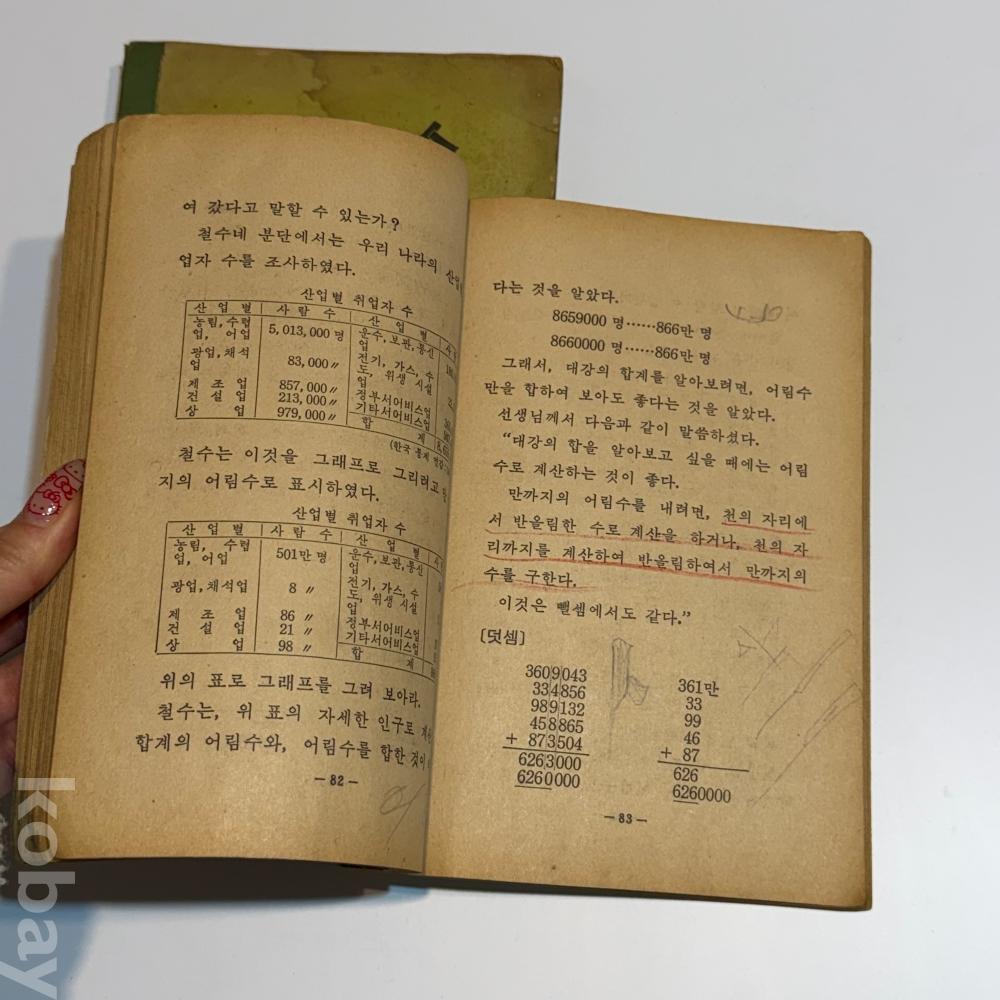 여 갔다고 말할 수 있는가?
철수네 분단에서는 우리 나라의
업자 수를 조사하였다.
산업별 취업자 수
산 업 별 사 람 수 산 업 별
농림, 수렵업, 어업 5,013,000 명 운수, 보관, 통신업
광업, 채석업 83,000 〃 전기, 가스, 수도, 위생 시설업
제 조 업 857,000 〃 정부서어비스업
건 설 업 213,000 〃 기타서어비스업
상 업 979,000 〃 합 계
철수는 이것을 그래프로 그리려고
지의 어림수로 표시하였다.
산업별 취업자 수
산 업 별 사 람 수 산 업 별
농림, 수렵업, 어업 501만 명 운수, 보관, 통신업
광업, 채석업 8 〃 전기, 가스, 수도, 위생 시설업
제 조 업 86 〃 정부서어비스업
건 설 업 21 〃 기타서어비스업
상 업 98 〃 합 계
위의 표로 그래프를 그려 보아라.
철수는, 위 표의 자세한 인구로
합계의 어림수와, 어림수를 합한 것이
— 82 —
다는 것을 알았다.
8659000 명……866만 명
8660000 명……866만 명
그래서, 대강의 합계를 알아보려면, 어림수
만을 합하여 보아도 좋다는 것을 알았다.
선생님께서 다음과 같이 말씀하셨다.
“대강의 합을 알아보고 싶을 때에는 어림
수로 계산하는 것이 좋다.
만까지의 어림수를 내려면, 천의 자리에
서 반올림한 수로 계산을 하거나, 천의 자
리까지를 계산하여 반올림하여서 만까지의
수를 구한다.
이것은 뺄셈에서도 같다.”
[덧셈]
3609043 361만
334856 33
989132 99
458865 46
+ 873504 + 87
6263000 626
6260000 6260000
— 83 —
kobay